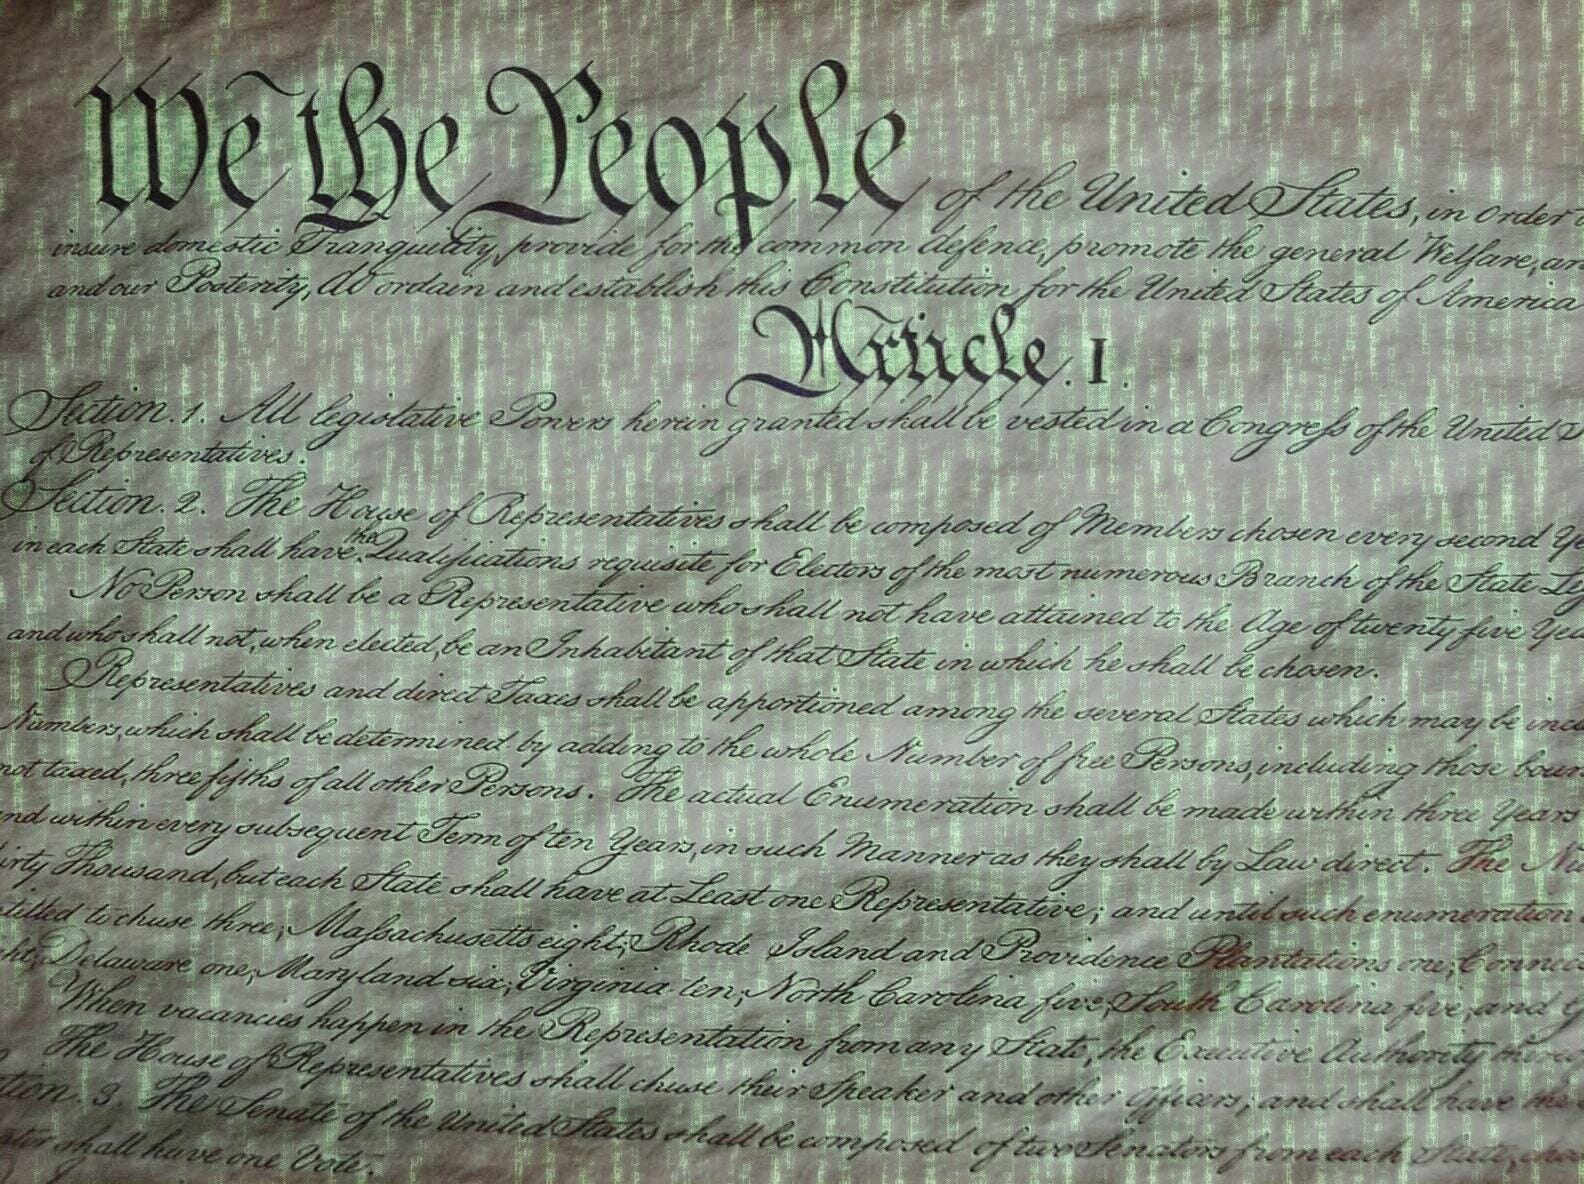 We the People of the United States, in order
insure domestic Tranquility, provide for the common defence, promote the general Welfare, an
and our Posterity, do ordain and establish this Constitution for the United States of America
Article. I.
Section. 1. All legislative Powers herein granted shall be vested in a Congress of the United S
of Representatives.
Section. 2. The House of Representatives shall be composed of Members chosen every second Ye
in each State shall have the Qualifications requisite for Electors of the most numerous Branch of the State Leg
No Person shall be a Representative who shall not have attained to the Age of twenty five Yea
and who shall not, when elected, be an Inhabitant of that State in which he shall be chosen.
Representatives and direct Taxes shall be apportioned among the several States which may be inc
Numbers, which shall be determined by adding to the whole Number of free Persons, including those boun
not taxed, three fifths of all other Persons. The actual Enumeration shall be made within three Years
nd within every subsequent Term of ten Years, in such Manner as they shall by Law direct. The Nu
irty Thousand, but each State shall have at Least one Representative; and until such enumeration
titled to chuse three; Massachusetts eight; Rhode Island and Providence Plantations one; Connec
ght; Delaware one; Maryland six; Virginia ten; North Carolina five; South Carolina five; and G
When vacancies happen in the Representation from any State, the Executive Authority thereo
The House of Representatives shall chuse their Speaker and other Officers; and shall have the
tion. 3. The Senate of the United States shall be composed of two Senators from each State, cho
ator shall have one Vote.